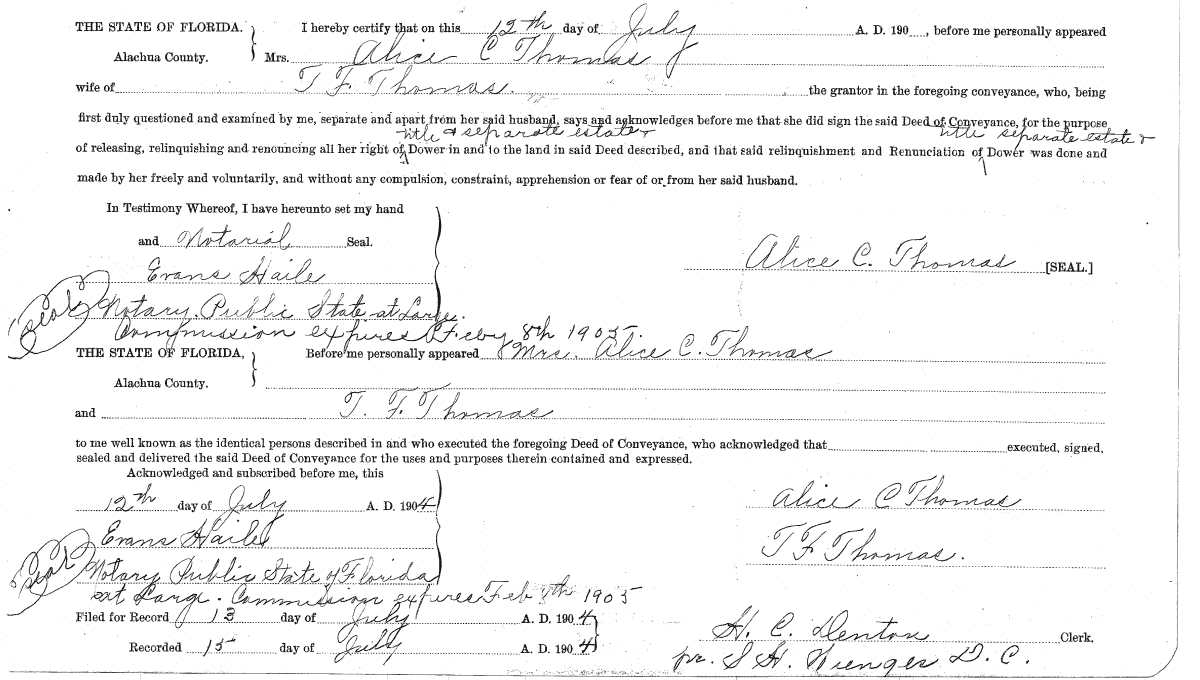 THE STATE OF FLORIDA. } I hereby certify that on this 12th day of July A. D. 190 , before me personally appeared
Alachua County. Mrs. Alice C Thomas
wife of T F Thomas. the grantor in the foregoing conveyance, who, being
first duly questioned and examined by me, separate and apart from her said husband, says and acknowledges before me that she did sign the said Deed of Conveyance, for the purpose
title & separate estate & title separate estate &
of releasing, relinquishing and renouncing all her right of Dower in and to the land in said Deed described, and that said relinquishment and Renunciation of Dower was done and
made by her freely and voluntarily, and without any compulsion, constraint, apprehension or fear of or from her said husband.
In Testimony Whereof, I have hereunto set my hand
and Notarial Seal.
Alice C. Thomas [SEAL.]
Evans Haile
Seal Notary Public State at Large.
Commission expires Feby 8th 1905.
THE STATE OF FLORIDA, } Before me personally appeared Mrs. Alice C. Thomas
Alachua County.
and T. F. Thomas
to me well known as the identical persons described in and who executed the foregoing Deed of Conveyance, who acknowledged that executed, signed,
sealed and delivered the said Deed of Conveyance for the uses and purposes therein contained and expressed.
Acknowledged and subscribed before me, this
12th day of July A. D. 1904
Alice C Thomas
Evans Haile
T F Thomas.
Seal Notary Public State of Florida
at Large. Commission expires Feb 8th 1905
Filed for Record 13 day of July A. D. 1904
H. C. Denton Clerk.
Recorded 15 day of July A. D. 1904
pr. S H. Wienges D. C.